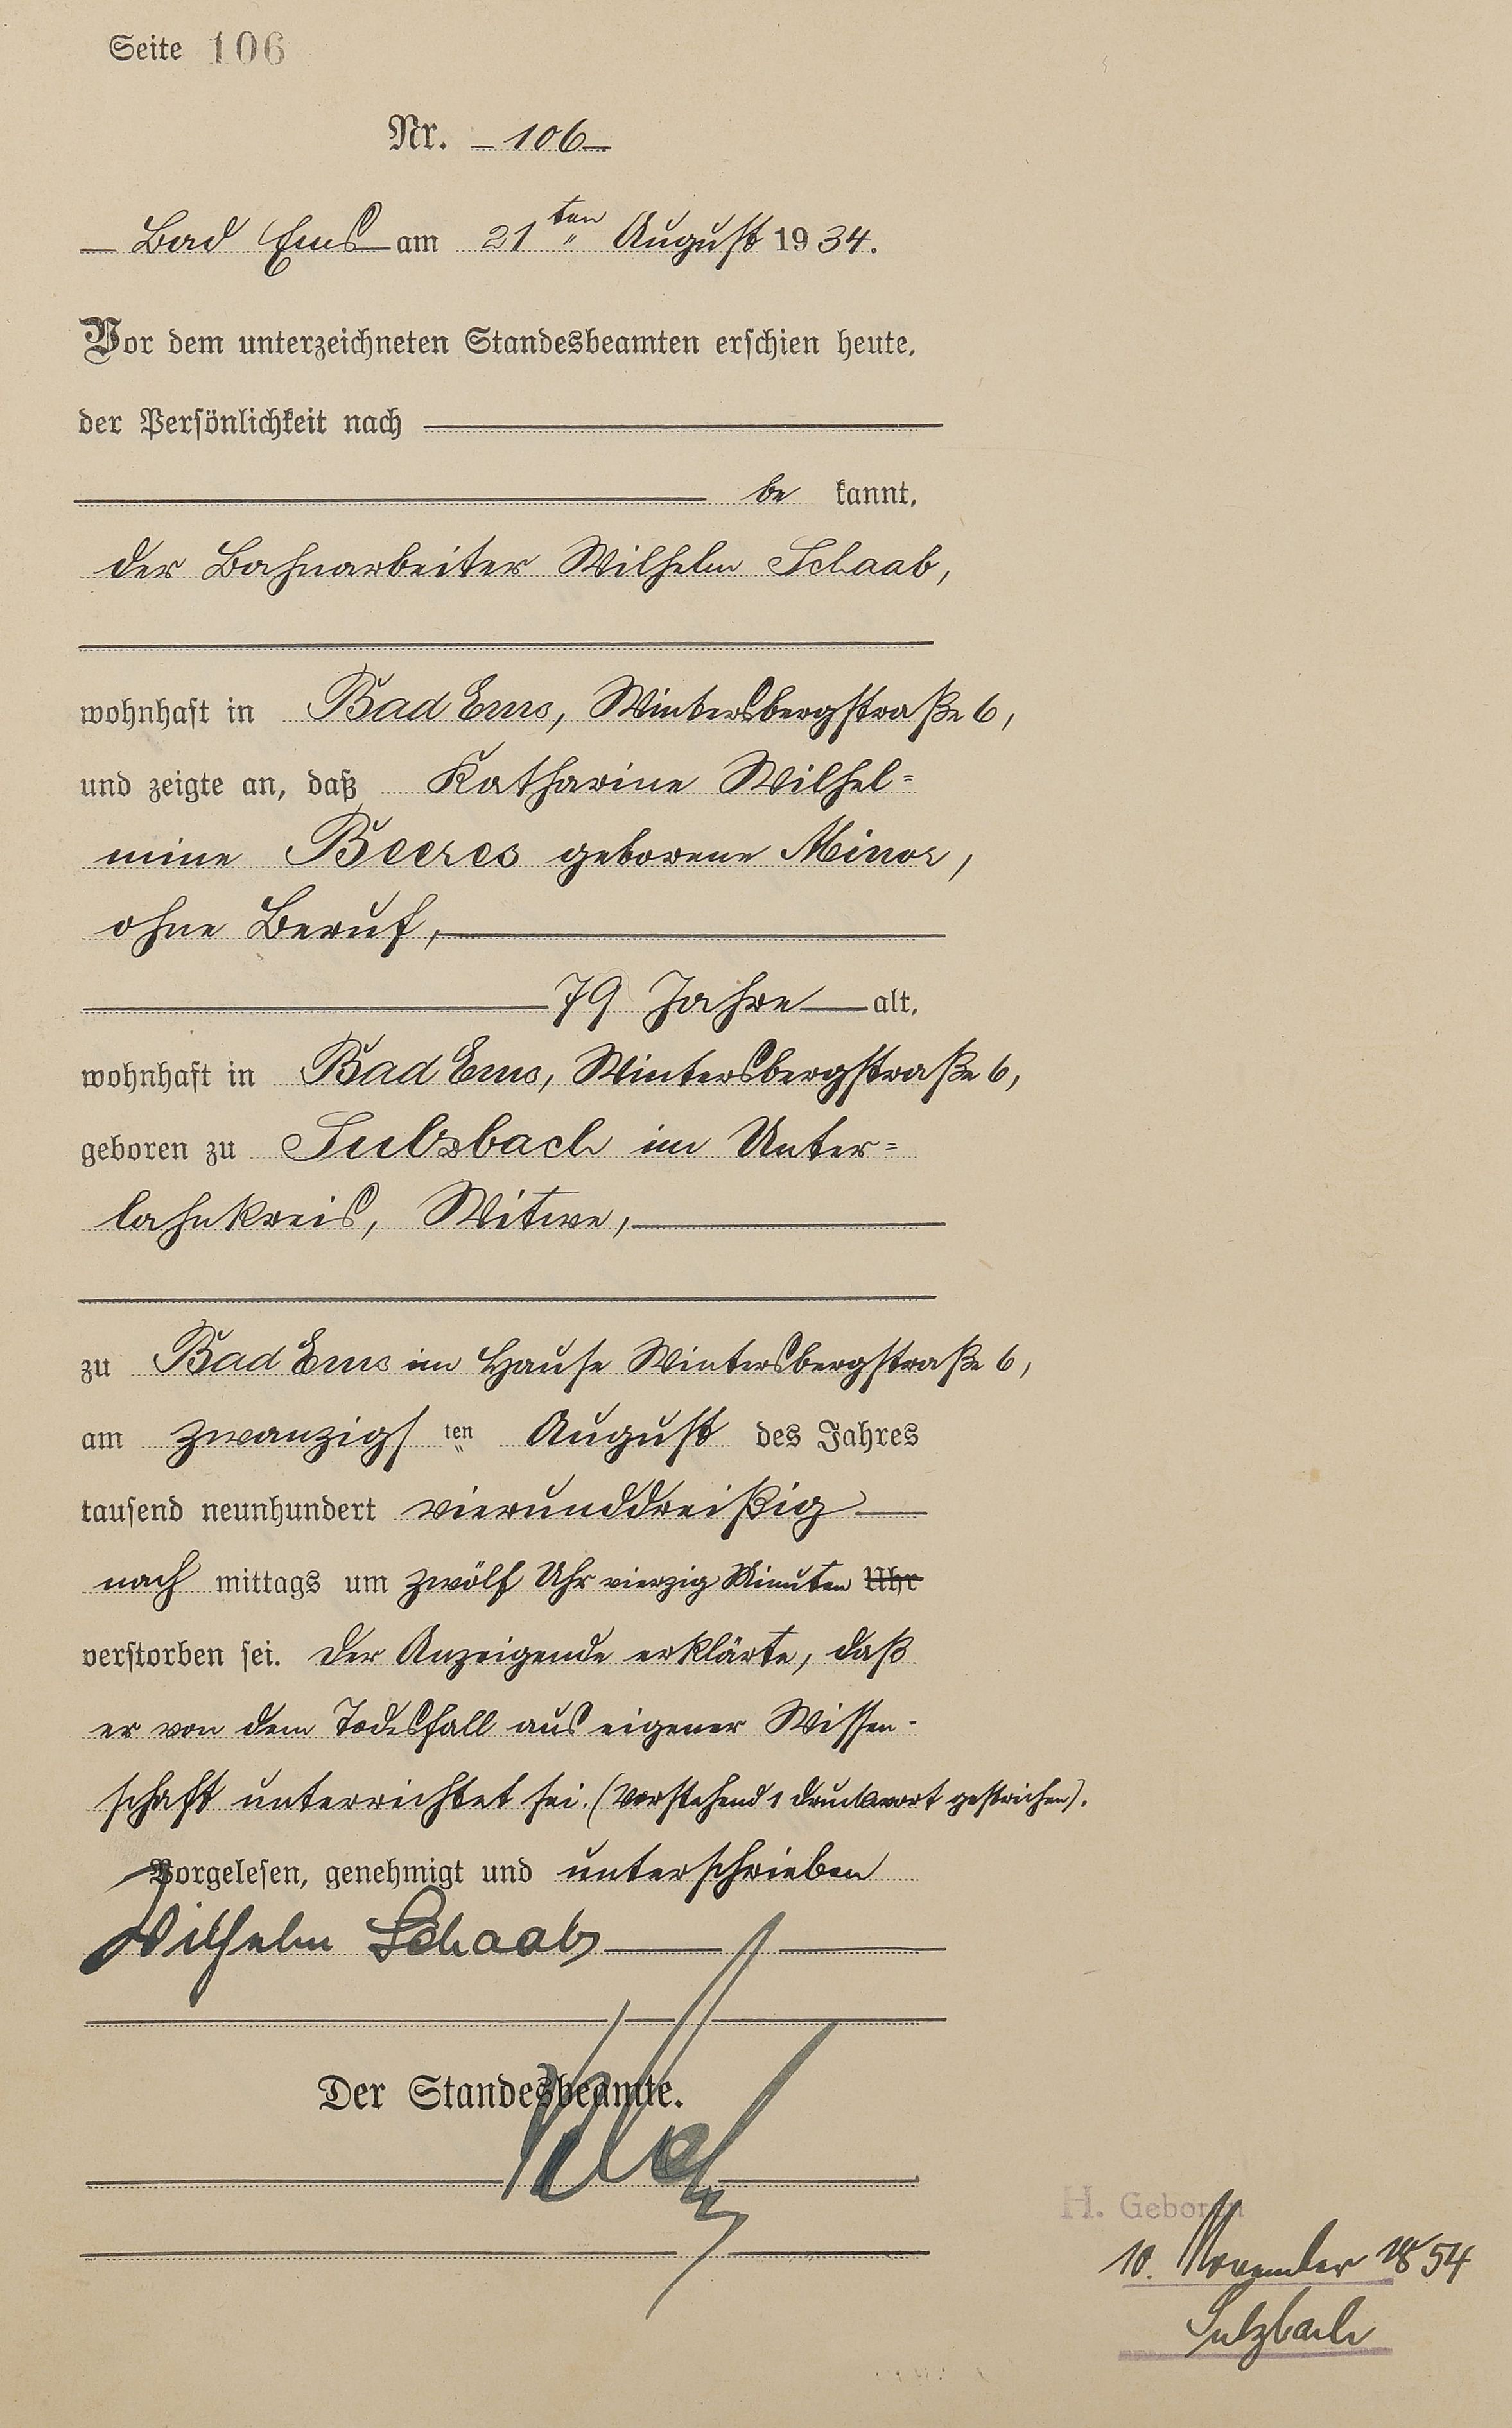 Seite 106
Nr. 106
Bad Ems am 21ten August 1934.
Vor dem unterzeichneten Standesbeamten erschien heute,
der Persönlichkeit nach
be kannt,
der Bahnarbeiter Wilhelm Schaab,
wohnhaft in Bad Ems, Wintersbergstraße 6,
und zeigte an, daß Katharine Wilhel=
mine Beeres geborene Minor,
ohne Beruf,
79 Jahre alt,
wohnhaft in Bad Ems, Wintersbergstraße 6,
geboren zu Sulzbach im Unter=
lahnkreis, Witwe,
zu Bad Ems im Hause Wintersbergstraße 6,
am zwanzigsten August des Jahres
tausend neunhundert vierunddreißig
nach mittags um zwölf Uhr vierzig Minuten Uhr
verstorben sei. Der Anzeigende erklärte, daß
er von dem Todesfall aus eigener Wissen-
schaft unterrichtet sei. (Vorstehend 1 Druckwort gestrichen).
Vorgelesen, genehmigt und unterschrieben
Wilhelm Schaab
Der Standesbeamte.
H. Geboren
10. November 1854
Sulzbach